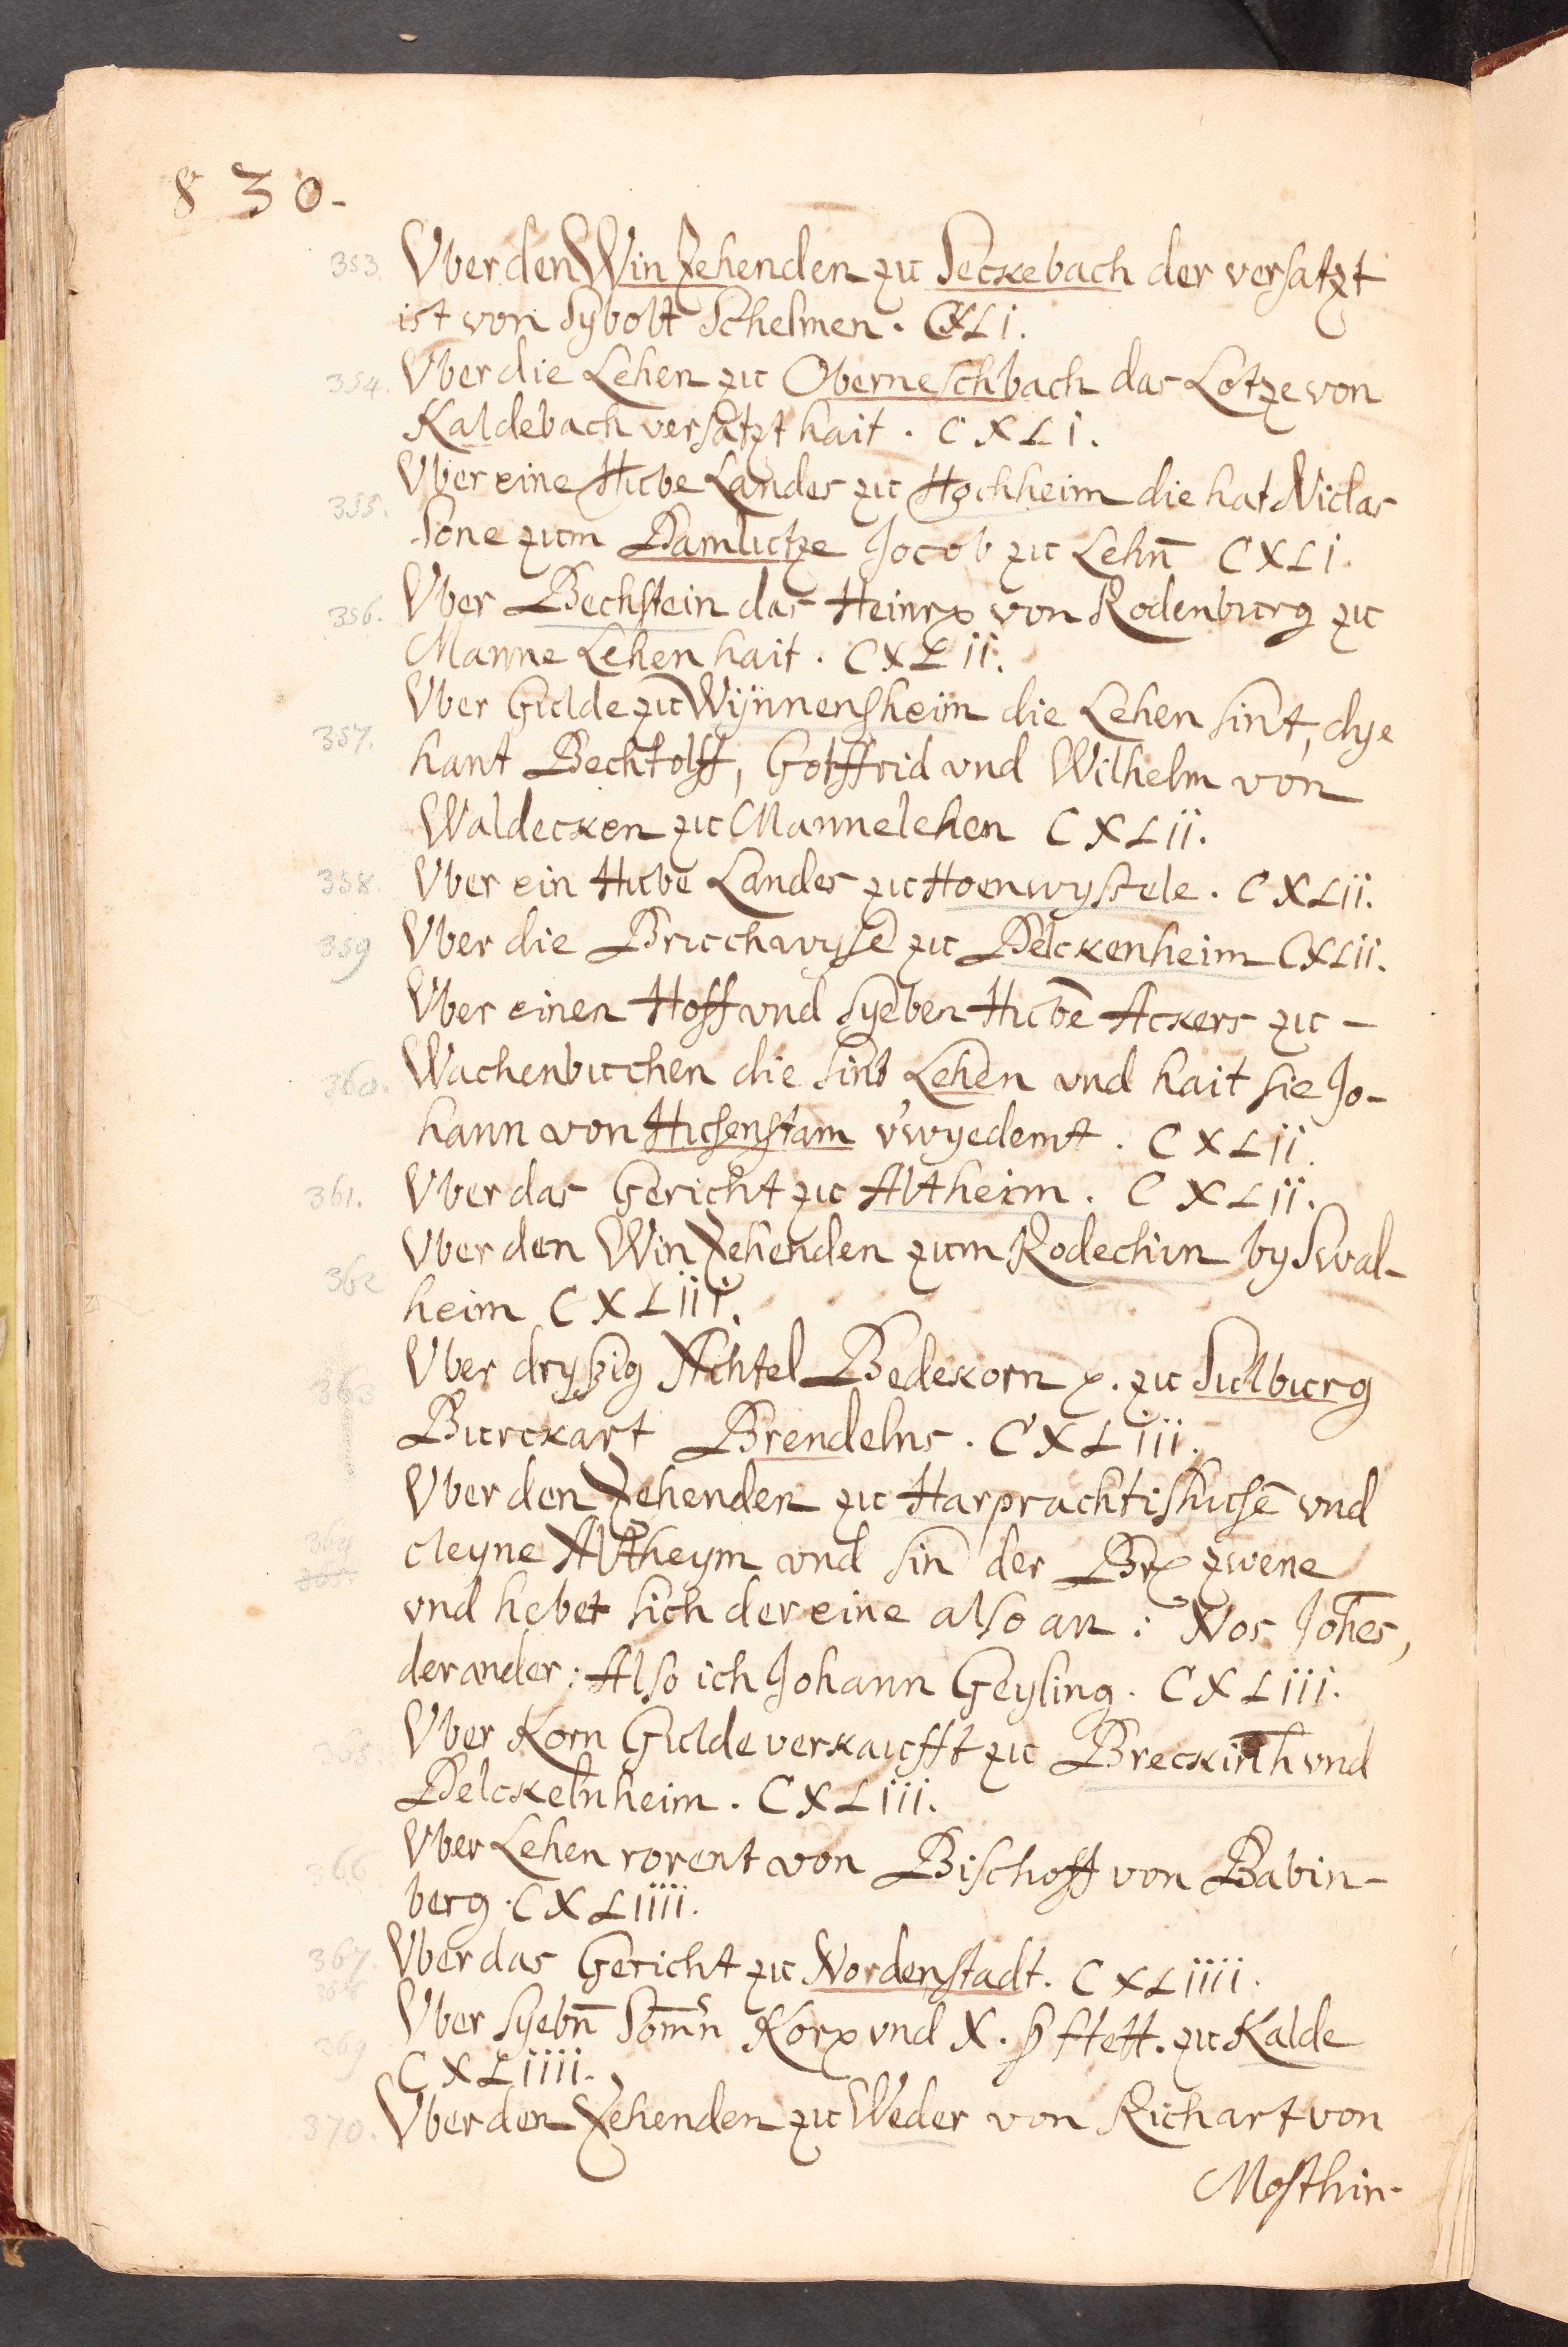 830.
353. Vber den Win Zehenden zu Seckebach der versatzt
ist von Sybolt Schelmen. CXLI.
354. Vber die Lehen zu Oberneschbach das Lotze von
Kaldebach versatzt hait. CXLI.
Vber eine Hube Landes zu Hochheim die hat Niclas
355. Sone zum Damlutze Jocob zu Lehn̄ CXLI.
356. Vber Bechstein das Heinrx von Rodenburg zu
Manne Lehen hait. CXLii.
357. Vber Gulde zu Wÿnnensheim die Lehen sint, dye
hant Bechtolff, Gotffrid vnd Wilhelm von
Waldecken zu Mannelehen CXLii.
358. Vber ein Hube Landes zu Hoenwystele. CXLii.
359 Vber die Bruchwyse zu Delckenheim CXLii.
Vber einen Hoff vnd syeben Hubē Ackers zu –
360. Wachenbuchen die sint Lehen vnd hait sie Jo-
hann von Husenstam v'wyedemt. CXLii.
361. Vber das Gericht zu Altheim. CXLii.
362 Vber den Win Zehenden zum Rodechin by Swal-
heim CXLiii.
363 Vber dryßig Achtel Bedekorn x. zu Sulburg
Burckart Brendelns. CXLiii.
Vber den Zehenden zu Harprachtishusē vnd
364 cleyne Altheym vnd sin der Brx zwene
365. vnd hebet sich der eine also an: Nos Joh̄es,
der ander: Also ich Johann Geyling. CXLiii.
365. Vber Korn Gulde verkaufft zu Breckinh vnd
Delckelnheim. CXLiii.
366 Vber Lehen rorent von Bischoff von Babin-
berg. CXLiiii.
367. Vber das Gericht zu Nordenstadt. CXLiiii.
368
369 Vber syebn̄ Som̄n Korx vnd X. ß ftett. zu Kalde
CXLiiii.
370. Vber den Zehenden zu Weder von Richart von
Mosthin-